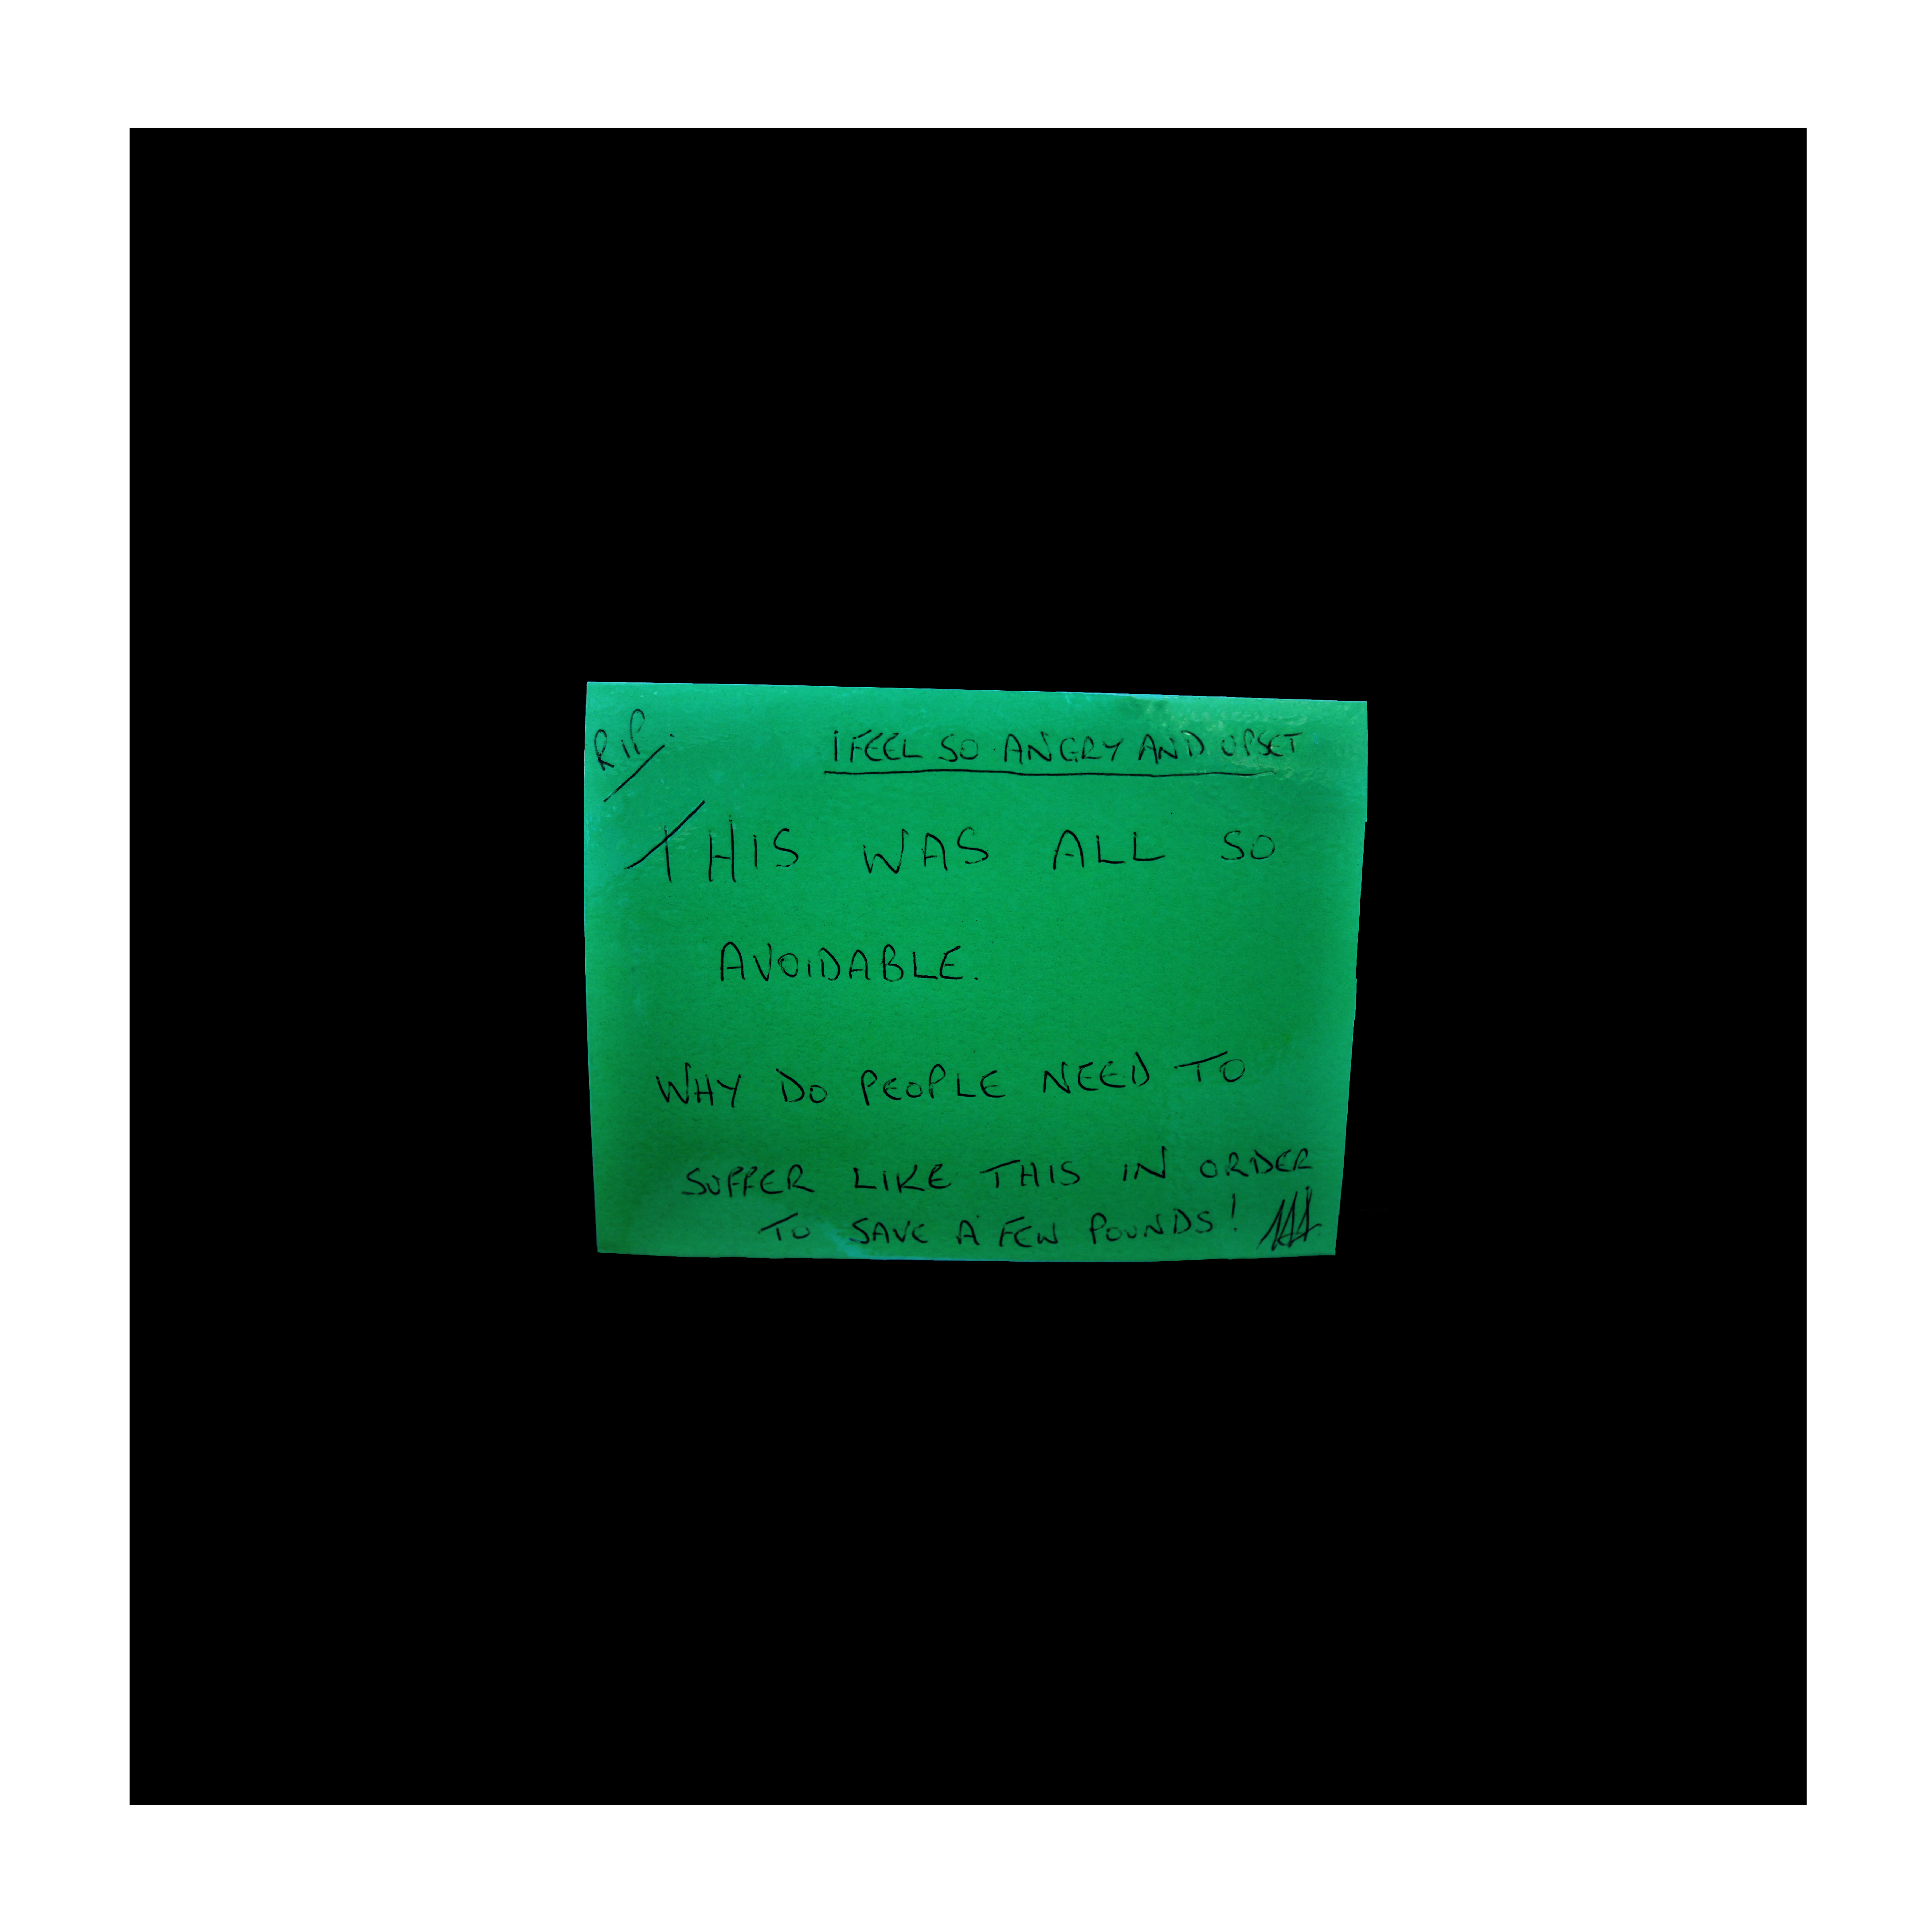 RIP.
I FEEL SO ANGRY AND UPSET
THIS WAS ALL SO
AVOIDABLE.
WHY DO PEOPLE NEED TO
SUFFER LIKE THIS IN ORDER
TO SAVE A FEW POUNDS!